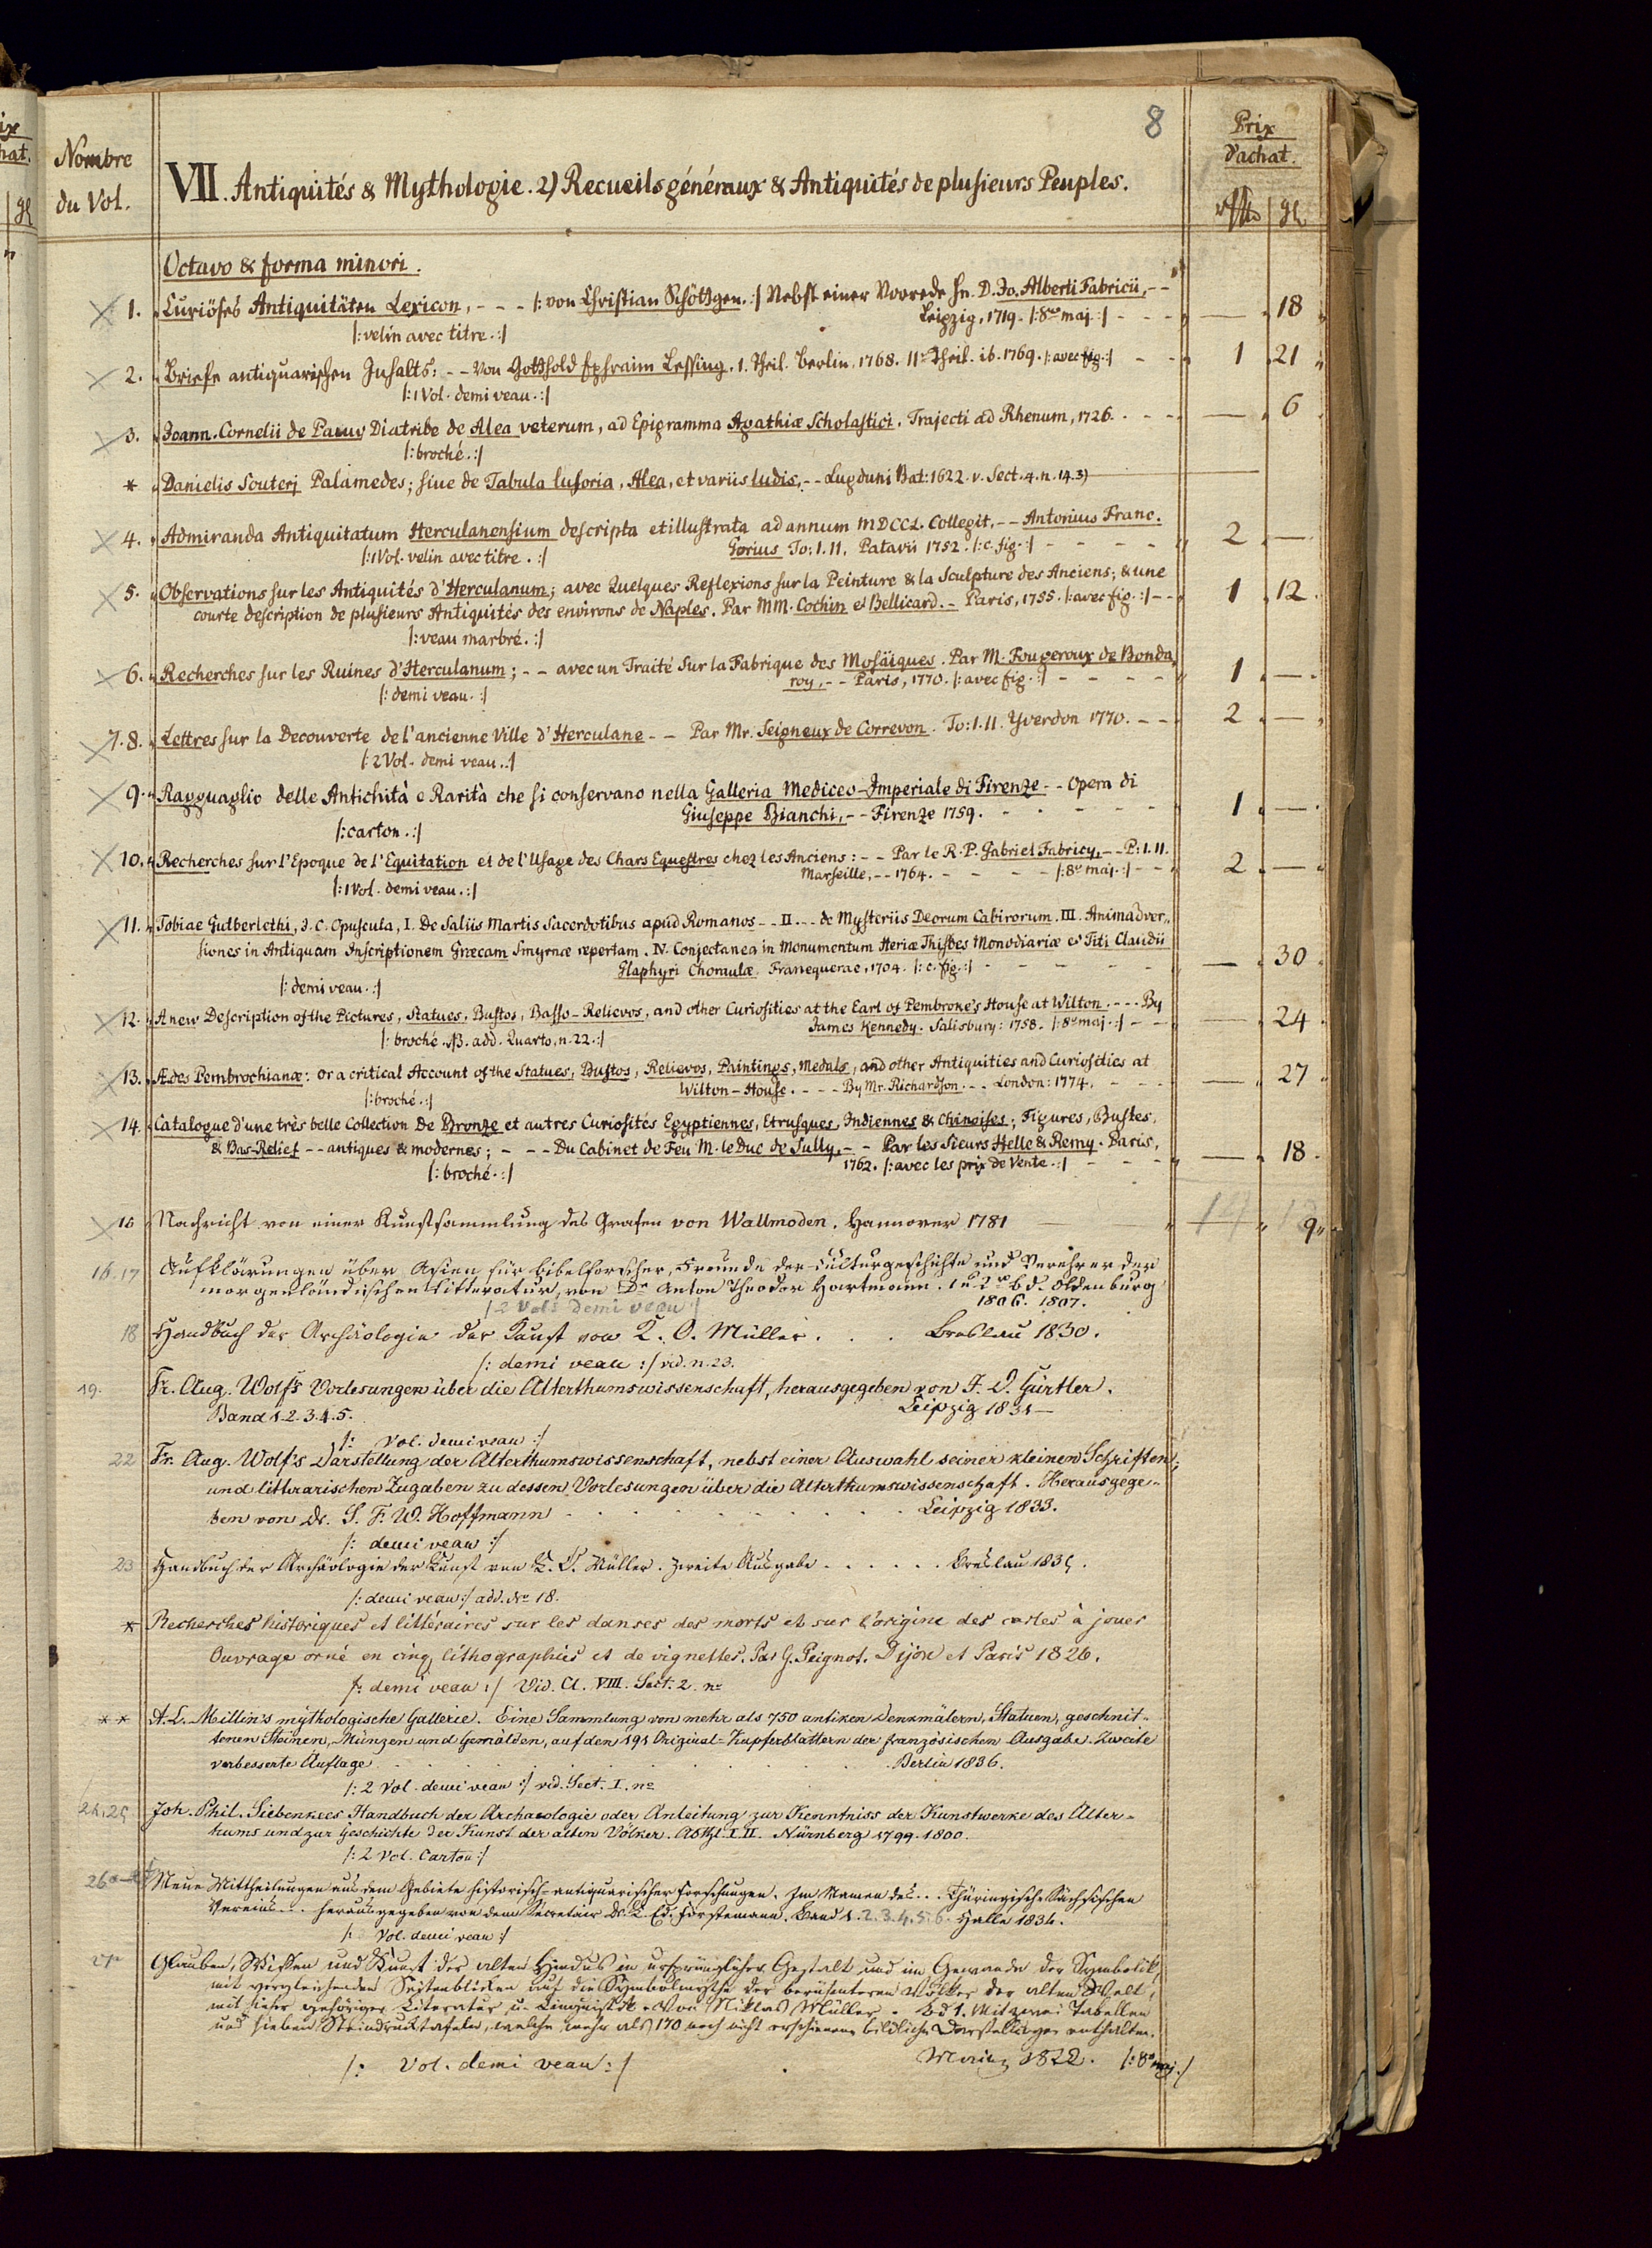 8
Nombre
du Vol.
VII. Antiquités & Mythologie. 2) Recueils généraux & Antiquités de plusieurs Peuples.
Prix
d'achat.
Octavo & forma minori.
1. Curiöses Antiquitäten Lexicon, - - - /: von Christian Schöttgen. :/ Nebst einer Vorrede Hn. D. Jo. Alberti Fabricii, - -
Leipzig, 1719. /: 8vo maj :/ - - - — 18
/: velin avec titre. :/
2. Briefe antiquarischen Inhalts: - - von Gotthold Ephraim Lessing. 1. Theil. Berlin. 1768. IIr Theil. ib. 1769. /: avec fig. :/ - - 1 21
/: 1 Vol. demi veau. :/
3. Joann. Cornelii de Pauw Diatribe de Alea veterum, ad Epigramma Agathiæ Scholastici. Trajecti ad Rhenum, 1726. - - - — 6
/: broché. :/
* Danielis Souterj Palamedes; sive de Tabula lusoria, Alea, et variis ludis. - - Lugduni Bat: 1622. v. Sect. 4. n. 14. 3)
4. Admiranda Antiquitatum Herculanensium descripta et illustrata ad annum MDCCL. Collegit, - - Antonius Franc.
Gorius To: I. II. Patavii 1752. /: c. fig. :/ - - - - 2 —
/: 1 Vol. velin avec titre. :/
5. Observations sur les Antiquités d'Herculanum; avec Quelques Reflexions sur la Peinture & la Sculpture des Anciens; & une
courte description de plusieurs Antiquités des environs de Naples. Par MM. Cochin et Bellicard. - Paris, 1755. /: avec fig. :/ - - 1 12
/: veau marbré. :/
6. Recherches sur les Ruines d'Herculanum; - - avec un Traité sur la Fabrique des Mosaïques. Par M. Fougeroux de Bonda,
roy, - - Paris, 1770. /: avec fig. :/ - - - - 1 —
/: demi veau. :/
7. 8. Lettres sur la Decouverte de l'ancienne Ville d'Herculane - - Par Mr. Seigneux de Correvon. To: I. II. Yverdon 1770. - - - 2 —
/: 2 Vol. demi veau. :/
9. Ragguaglio delle Antichità e Rarità che si conservano nella Galleria Mediceo-Imperiale di Firenze - - Opera di
Giuseppe Bianchi, - - Firenze 1759. - - - - - 1 —
/: carton. :/
10. Recherches sur l'Epoque de l'Equitation et de l'Usage des Chars Equestres chez les Anciens: - - Par le R. P. Gabriel Fabricy, - - P: I. II.
Marseille, - - 1764. - - - - /: 8vo maj. :/ - - 2 —
/: 1 Vol. demi veau. :/
11. Tobiae Gutberlethi, J. C. Opuscula, I. De Saliis Martis Sacerdotibus apud Romanos - - II. - - de Mysteriis Deorum Cabirorum. III. Animadver,,
siones in Antiquam Inscriptionem Græcam Smyrnæ repertam. IV. Conjectanea in Monumentum Heriæ Thisbes Monodiariæ et Titi Claudii
Glaphyri Choraulæ. Franequerae, 1704. /: c. fig. :/ - - - - - — 30
/: demi veau. :/
12. A new Description of the Pictures, Statues, Bustos, Basso-Relievos, and other Curiosities at the Earl of Pembroke's House at Wilton. - - - By
James Kennedy. Salisbury: 1758. /: 8vo maj. :/ - - — 24
/: broché. NB. add. Quarto, n. 22. :/
13. Ædes Pembrochianæ: or a critical Account of the Statues, Bustos, Relievos, Paintings, Medals, and other Antiquities and Curiosities at
Wilton-House. - - - - By Mr. Richardson. - - London: 1774, - - - — 27
/: broché. :/
14. Catalogue d'une très belle Collection de Bronze et autres Curiosités Egyptiennes, Etrusques, Indiennes & Chinoises; Figures, Bustes,
& Bas-Relief - - antiques & modernes; - - - Du Cabinet de Feu M. le Duc de Sully, - - Par les Sieurs Helle & Remy. Paris,
1762. /: avec les prix de Vente. :/ - - - — 18
/: broché. :/
15 Nachricht von einer Kunstsammlung des Grafen von Wallmoden. Hannover 1781 9
16. 17 Aufklärungen über Asien für Bibelforscher, Freunde der Culturgeschichte und Verehrer der
morgenländischen Litteratur, von Dr Anton Theodor Hartmann. 1r 2r Bd. Oldenburg
1806. 1807.
/: 2 Vol: demi veau :/
18 Handbuch der Archäologie der Kunst von K. O. Müller. . . Breslau 1830.
/: demi veau :/ vid. n. 23.
19. Fr. Aug. Wolf's Vorlesungen über die Alterthumswissenschaft, herausgegeben von J. D. Gürtler.
Band 1. 2. 3. 4. 5. Leipzig 1831 —
/: Vol. demi veau :/
22 Fr. Aug. Wolf's Darstellung der Alterthumswissenschaft, nebst einer Auswahl seiner kleinen Schriften;
und litterarischen Zugaben zu dessen Vorlesungen über die Alterthumswissenschaft. Herausgege-
ben von Dr. S. F. W. Hoffmann . . . . . Leipzig 1833.
/: demi veau :/
23 Handbuch der Archäologie der Kunst von K. O. Müller. Zweite Ausgabe . . . . . Breslau 1835.
/: demi veau :/ add. No 18.
* Recherches historiques et littéraires sur les danses des morts et sur l'origine des cartes à jouer
Ouvrage orné en cinq lithographies et de vignettes. Par G. Peignot. Dijon et Paris 1826.
/: demi veau :/ Vid. Cl. VIII. Sect. 2. no
* * A. L. Millin's mythologische Gallerie. Eine Sammlung von mehr als 750 antiken Denkmälern, Statuen, geschnit-
tenen Steinen, Münzen und Gemälden, auf den 191 Original-Kupferblättern der französischen Ausgabe. Zweite
verbesserte Auflage . . . . . Berlin 1836.
/: 2 Vol. demi veau :/ vid. Sect. I. no
24. 25 Joh. Phil. Siebenkees Handbuch der Archaeologie oder Anleitung zur Kenntniss der Kunstwerke des Alter-
thums und zur Geschichte der Kunst der alten Völker. Abthl. I. II. Nürnberg 1799. 1800.
/: 2 Vol. Carton :/
26a Neue Mittheilungen aus dem Gebiete historisch-antiquarischer Forschungen. Im Namen des . . . Thüringisch-Sächsischen
Vereins . . . herausgegeben von dem Secretair Dr. K. Ed. Förstemann. Band 1. 2. 3. 4. 5. 6. Halle 1834.
/: Vol. demi veau :/
27 Glauben, Wissen und Kunst der alten Hindus in ursprünglicher Gestalt und im Gewande der Symbolik,
mit vergleichenden Seitenblicken auf die Symbolmythe der berühmteren Völker der alten Welt,
mit hieher gehöriger Literatur u. Linguistik. Von Niklas Müller. Bd 1. Mit zwei Tabellen
und sieben Steindrucktafeln, welche mehr als 170 noch nicht erschienene bildliche Darstellungen enthalten.
Mainz 1822. /: 8o maj. :/
/: Vol. demi veau :/